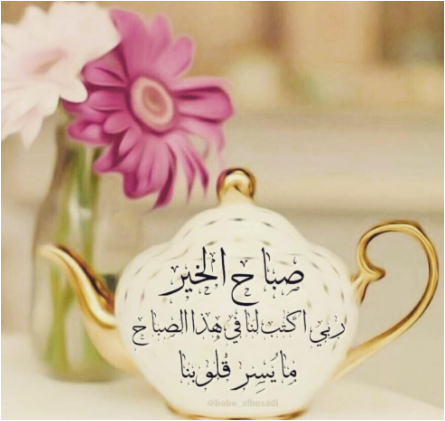 صباح الخير
ربي اكتب لنا في هذا الصباح
ما يُسِر قُلوبنا
@bobo_albusadi